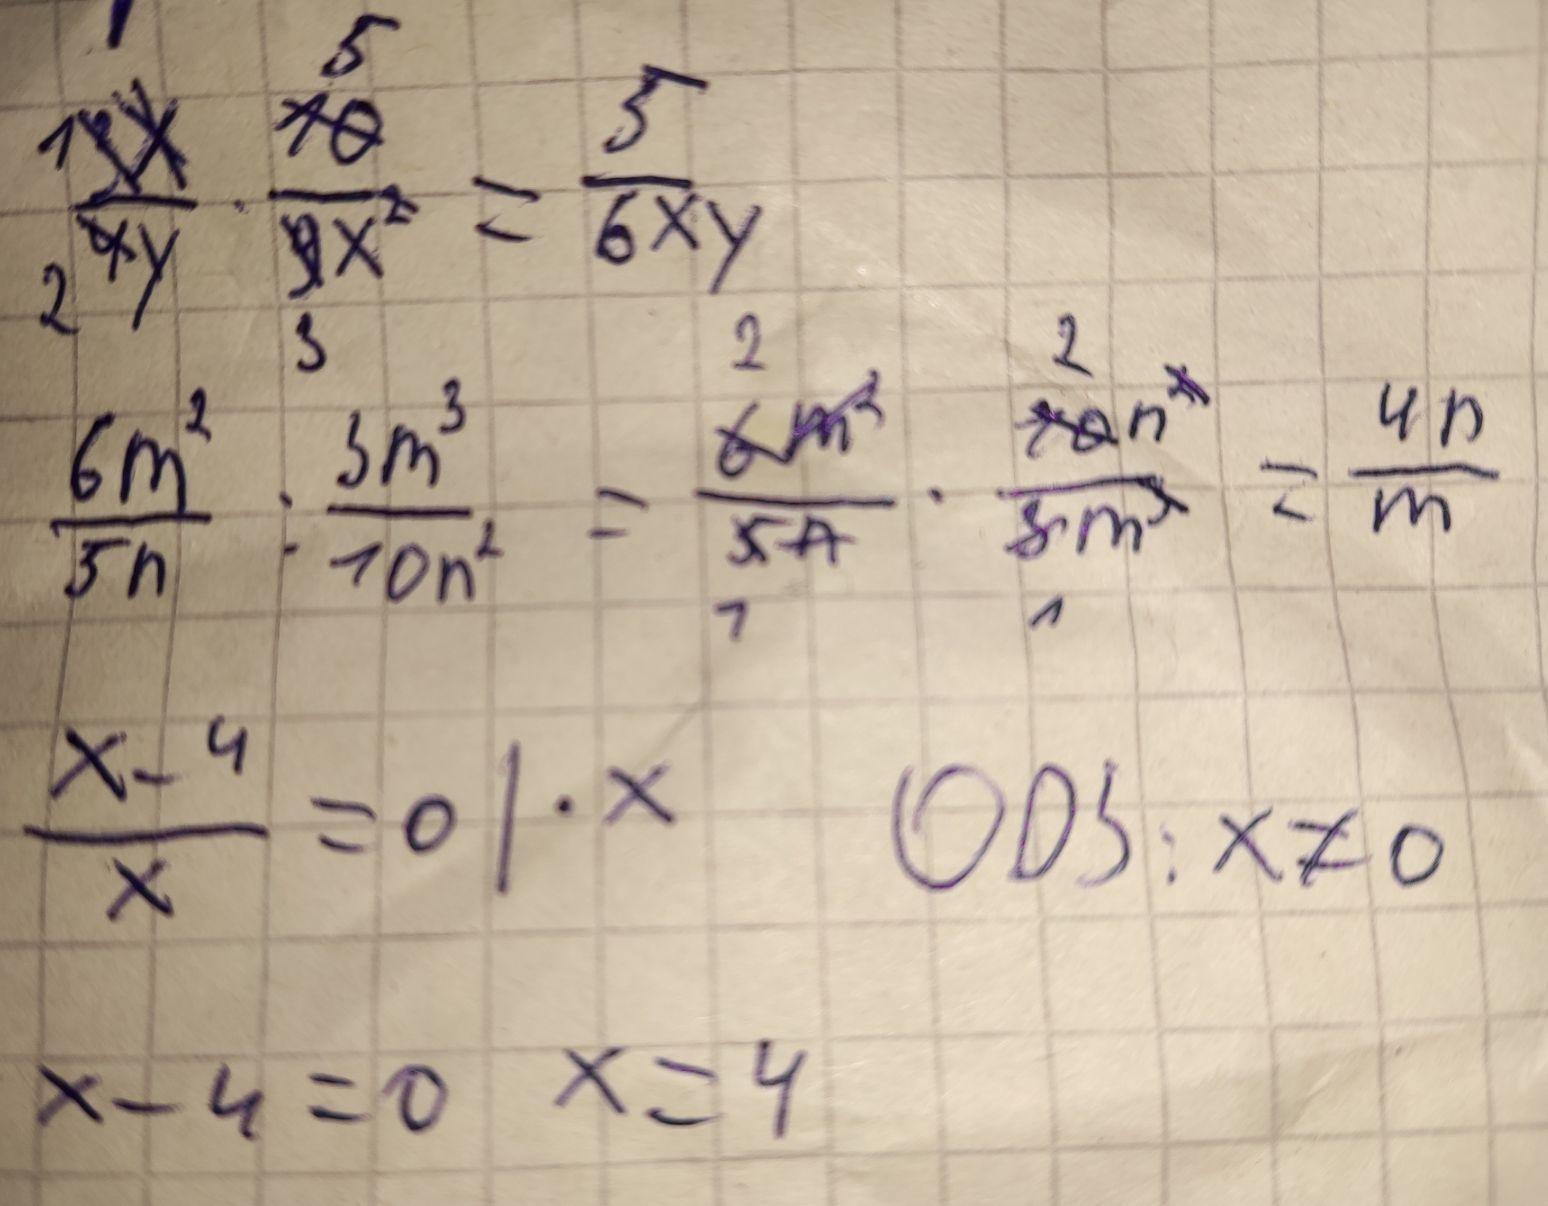 3x/4y · 10/9x² = 5/6xy
6m²/5n : 3m³/10n² = 6m²/5n · 10n²/3m³ = 4n/m
x-4/x = 0 | · x ODS: x≠0
x-4=0 x=4